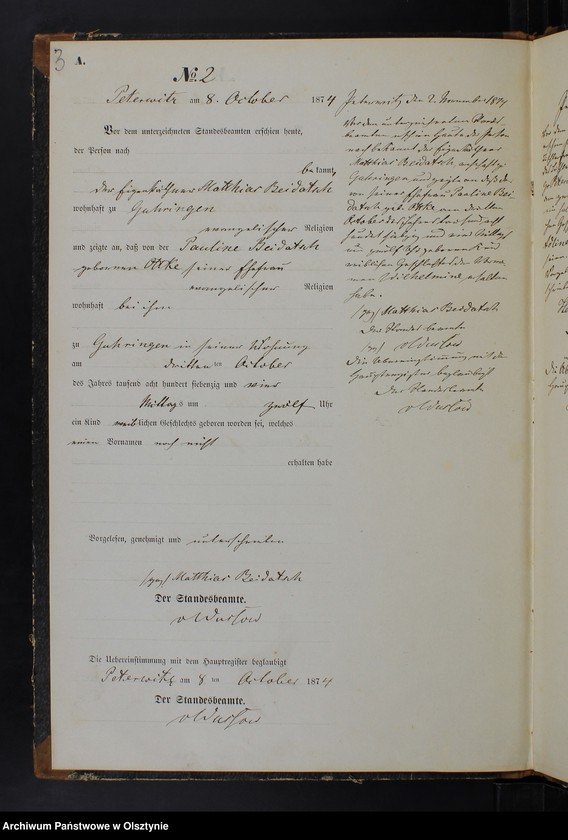 3
A.
No. 2
Peterwitz am 8. October 1874
Vor dem unterzeichneten Standesbeamten erschien heute,
der Person nach
bekannt,
der Eigenkäthner Matthias Beidatsch
wohnhaft zu Guhringen
evangelischer Religion
und zeigte an, daß von der Pauline Beidatsch
geborenen Ottke seiner Ehefrau
evangelischer Religion
wohnhaft bei ihm
zu Guhringen in seiner Wohnung
am dritten ten October
des Jahres tausend acht hundert siebenzig und vier
Mittags um zwölf Uhr
ein Kind weiblichen Geschlechts geboren worden sei, welches
einen Vornamen noch nicht
erhalten habe
Vorgelesen, genehmigt und unterschrieben
(gez) Matthias Beidatsch
Der Standesbeamte.
v Wussow
Die Uebereinstimmung mit dem Hauptregister beglaubigt
Peterwitz am 8 ten October 1874
Der Standesbeamte.
v Wussow
Peterwitz den 2. November 1874
Vor dem unterzeichneten Standes
beamten erschien heute der Person
nach bekannt der Eigenkäthner
Matthias Beidatsch wohnhaft zu
Guhringen und zeigte an daß das
von seiner Ehefrau Pauline Bei
datsch geb. Ottke am dritten
October des Jahres tausend acht
hundert siebzig und vier Mittags
um zwölf Uhr geborene Kind
weiblichen Geschlechts den Vorna
men Wilhelmine erhalten
habe.
(gez) Matthias Beidatsch
Der Standesbeamte
(gez) v Wussow
Die Uebereinstimmung mit dem
Hauptregister beglaubigt
Der Standesbeamte
v Wussow
Archiwum Państwowe w Olsztynie